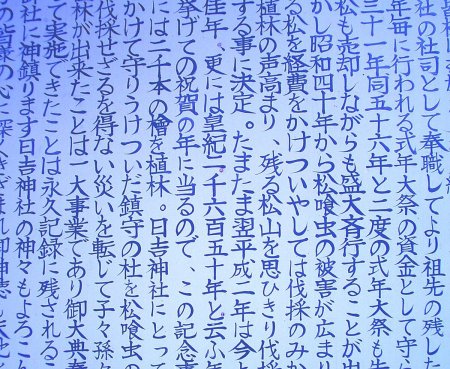 社の社司として奉職してより祖先の残した
年毎に行われる式年大祭の資金として守
三十一年同五十六年と二度の式年大祭も
松も売却しながらも盛大斉行することが出
かし昭和四十年から松喰虫の被害が広まり
る松を経費をかけついやしては伐採のみか
植林の声高まり、残る松山を思ひきり伐採
する事に決定。たまたま翌平成二年は今
佳年。更には皇紀二千六百五十年と云ふ年
挙げての祝賀の年に当るので、この記念事
には二千本の檜を植林。日吉神社にとって
かけて守りうけついだ鎮守の杜を松喰虫の
伐採せざるを得ない災いを転じて子々孫々
林が出来たことは一大事業であり御大典奉
て実施できたことは永久記録に残されるこ
社に沖鎮ります日吉神社の神々もよろこん
の皆様の心に深くきざまれ御神徳